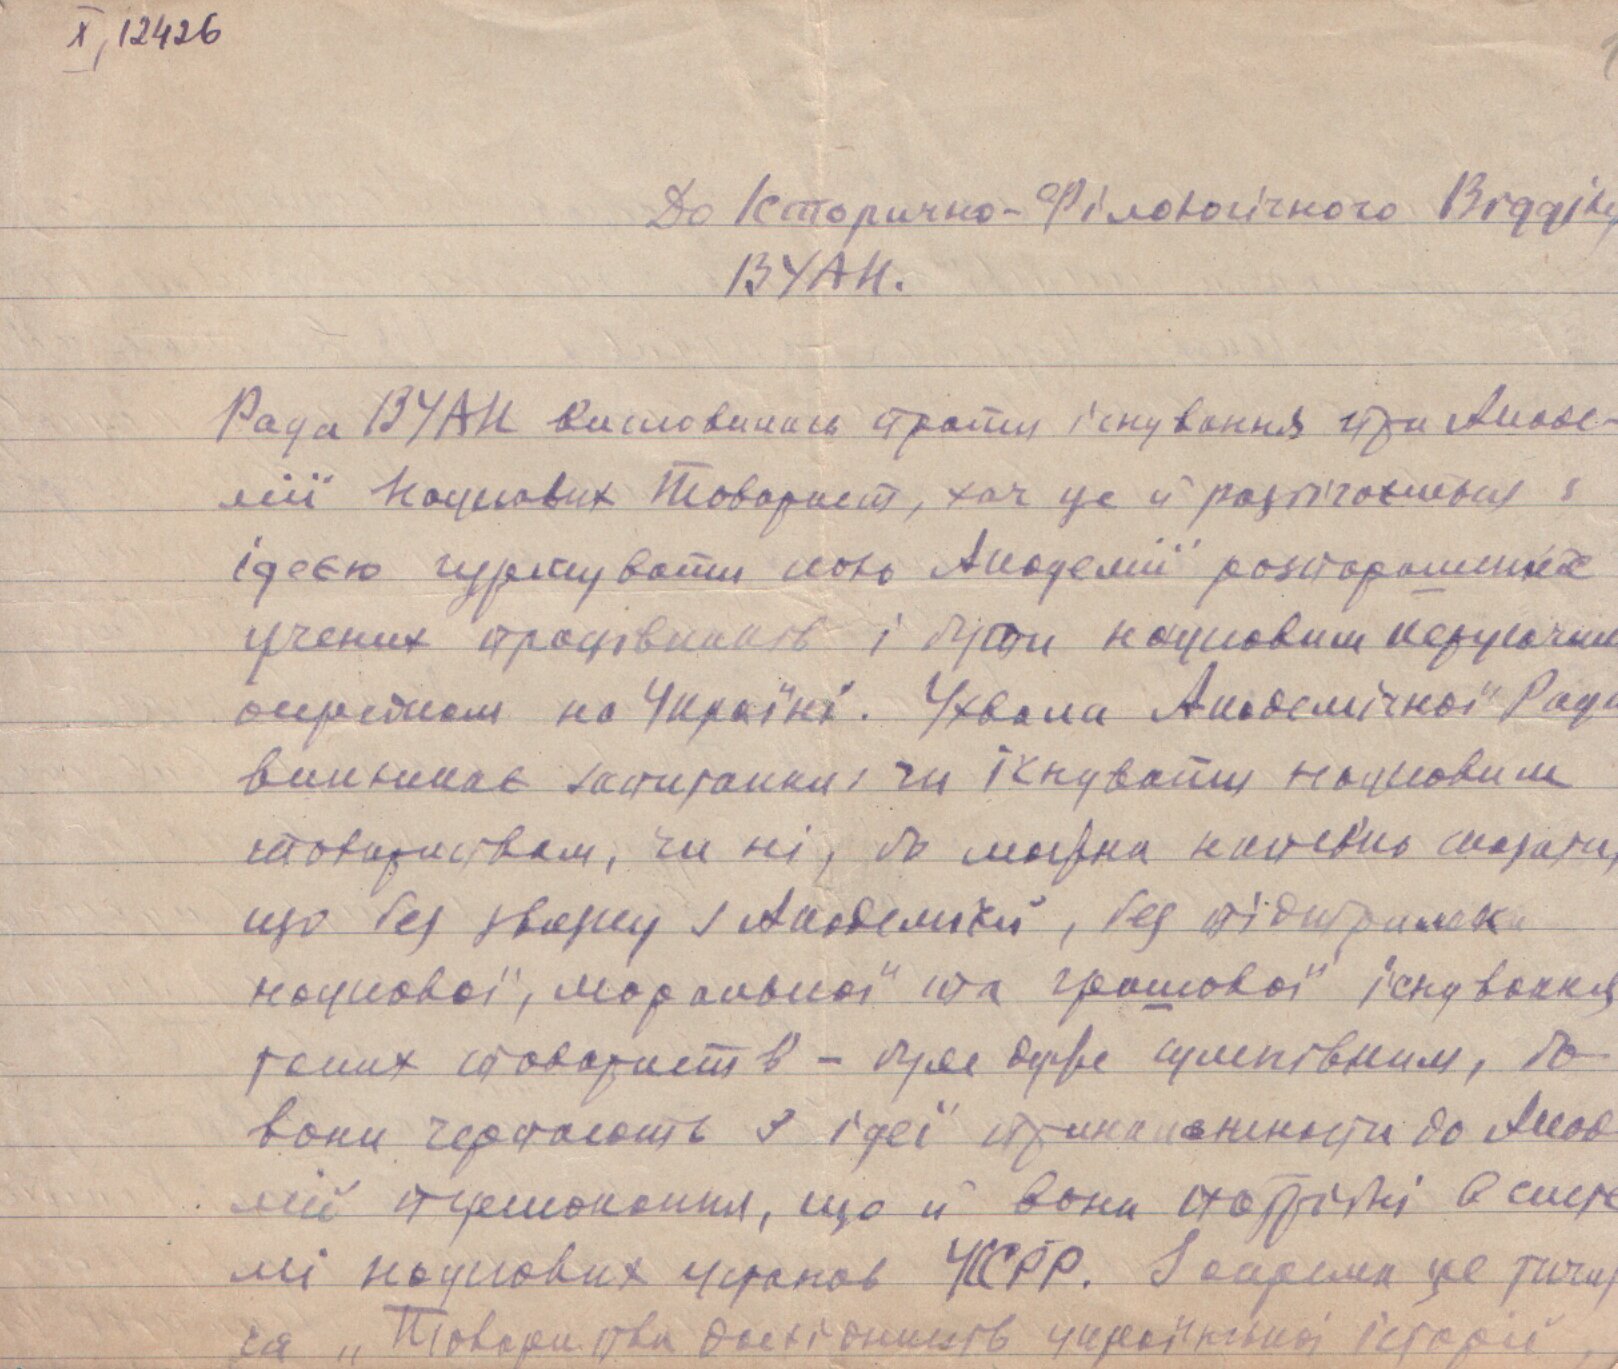 X, 12426
До Історично-Філологічного Відділу
ВУАН.
Рада ВУАН висловилась проти існування при Акаде-
мії Наукових Товариств, хоч це й розбігається з
ідеєю гуртувати коло Академії розпорошених
учених працівників і бути науковим керуючим
осередком на Україні. Ухвала Академічної Ради
викликає запитання: чи існувати науковим
товариствам, чи ні, бо можна напевно сказати,
що без звязку з Академією, без підтримки
наукової, моральної та грошової існування
таких товариств – буде дуже сумнівним, бо
вони черпають з ідеї приналежности до Акаде
мії переконання, що й вони потрібні в систе
мі наукових установ УСРР. Зокрема це тичить
ся „Товариства дослідників української історії,